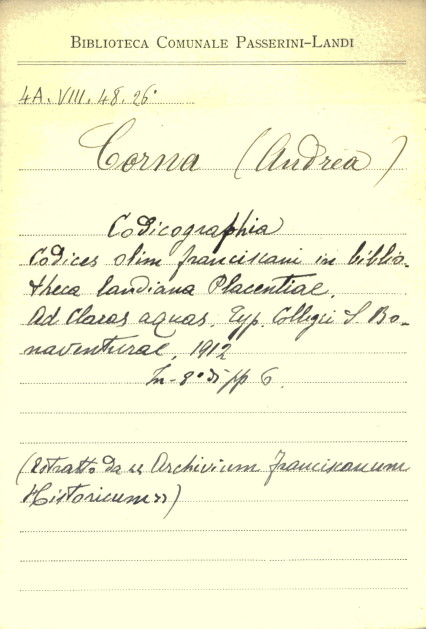 BIBLIOTECA COMUNALE PASSERINI-LANDI
4A. VIII. 48. 26°
Corna (Andrea)
Codicographia
Codices olim franciscani in biblio-
theca landiana Placentiae.
Ad Claras aquas, Typ. Collegii S. Bo-
naventurae, 1912
In-8° di pp 6.
(Estratto da « Archivium franciscanum
Historicum »)